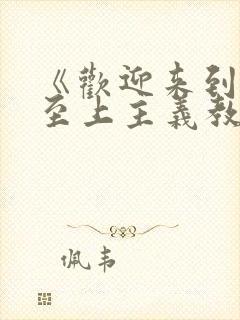 《歡迎来到
至上主義教
佩韦